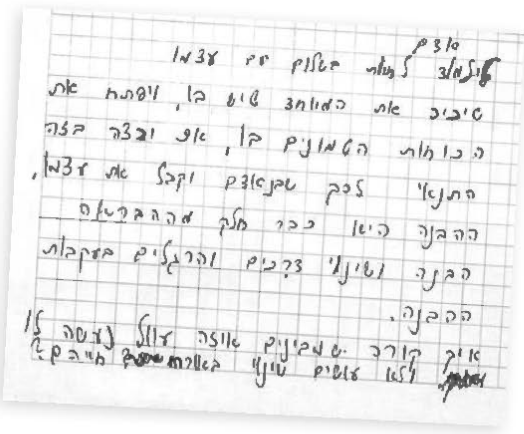 אדם
שילמד לחיות בשלום עם עצמו
שיכיר את המיוחד שיש בו, ויפתח את
הכוחות הטמונים בו, אם ירצה בזה
התנאי לכך שבנאדם יקבל את עצמו,
ההבנה היא כבר חלק מההבראה
הבנה ושינוי דרכים והרגלים בעקבות
ההבנה.
איך קורה שמבינים איזה עוול נעשה לו
ולא עושים שינוי באורח חייהם?